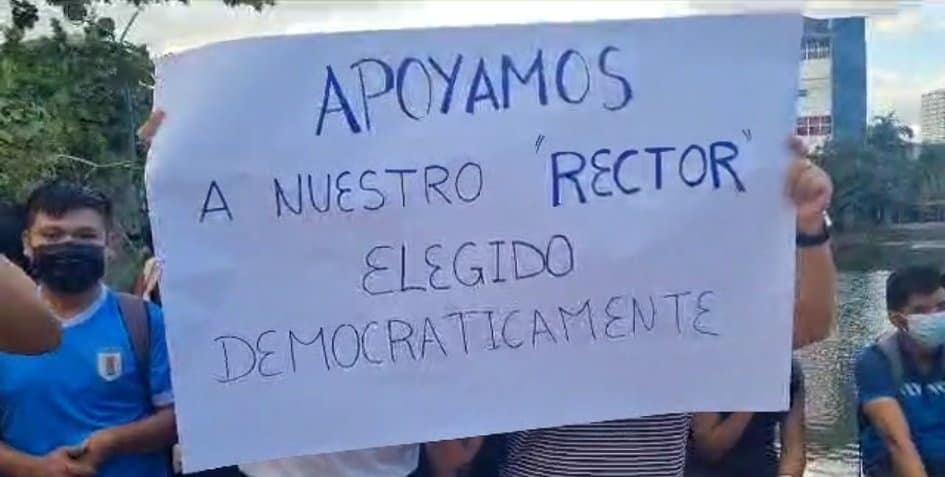 APOYAMOS
A NUESTRO "RECTOR"
ELEGIDO
DEMOCRATICAMENTE